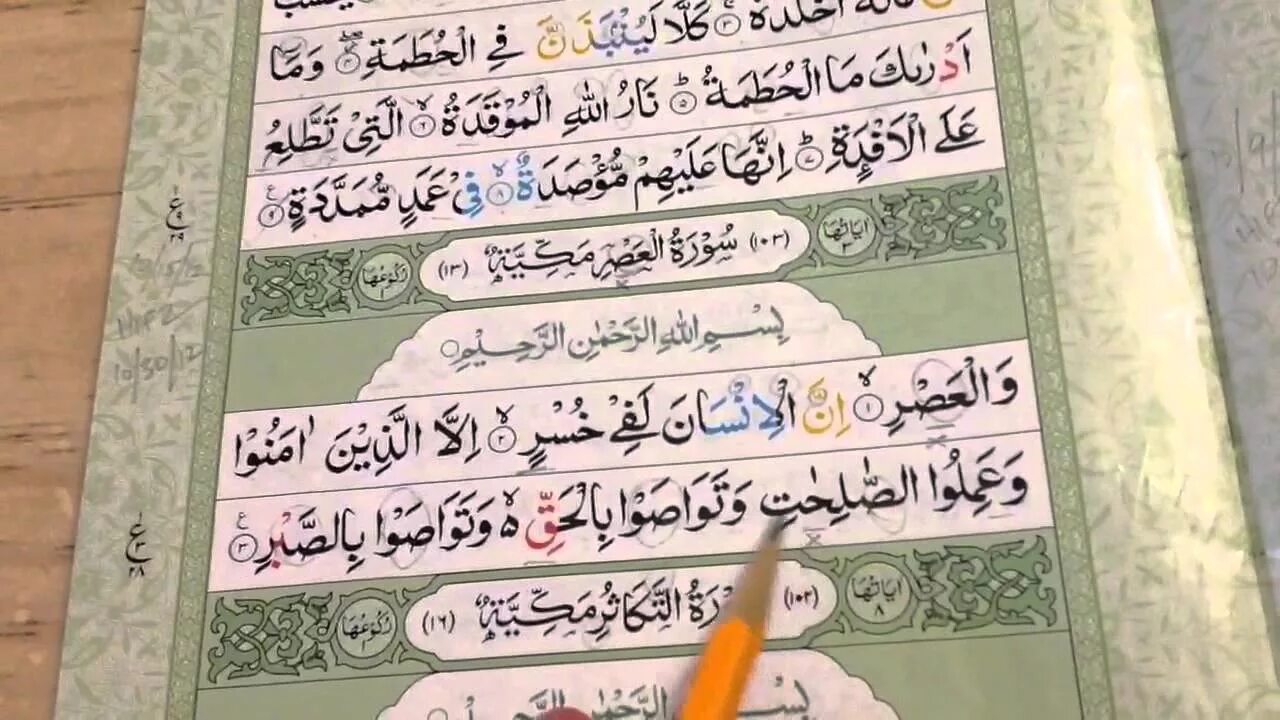 اَخْلَدَهٗ ۝٣ كَلَّا لَيُنْۢبَذَنَّ فِي الْحُطَمَةِ ۝٤ وَمَاۤ
اَدْرٰىكَ مَا الْحُطَمَةُ ۝٥ؕ نَارُ اللّٰهِ الْمُوْقَدَةُ ۝٦ۙ الَّتِيْ تَطَّلِعُ
عَلَى الْاَفْـِٕدَةِ ۝٧ؕ اِنَّهَا عَلَيْهِمْ مُّؤْصَدَةٌ ۝٨ۙ فِيْ عَمَدٍ مُّمَدَّدَةٍ ۝٩
ع
٩
٢٩
اٰيَاتُهَا ٣ (١٠٣) سُوْرَةُ الْعَصْرِ مَكِّيَّةٌ (١٣) رُكُوْعُهَا ١
بِسْمِ اللّٰهِ الرَّحْمٰنِ الرَّحِيْمِ
HIFZ
10/30/12
وَالْعَصْرِ ۝١ۙ اِنَّ الْاِنْسَانَ لَفِيْ خُسْرٍ ۝٢ۙ اِلَّا الَّذِيْنَ اٰمَنُوْا
وَعَمِلُوا الصّٰلِحٰتِ وَتَوَاصَوْا بِالْحَقِّ ۙ۬ وَتَوَاصَوْا بِالصَّبْرِ ۝٣
ع
٣
٢٨
اٰيَاتُهَا ٨ (١٠٢) التَّكَاثُرِ مَكِّيَّةٌ (١٦) رُكُوْعُهَا ١
بِسْمِ الرَّحْمٰنِ